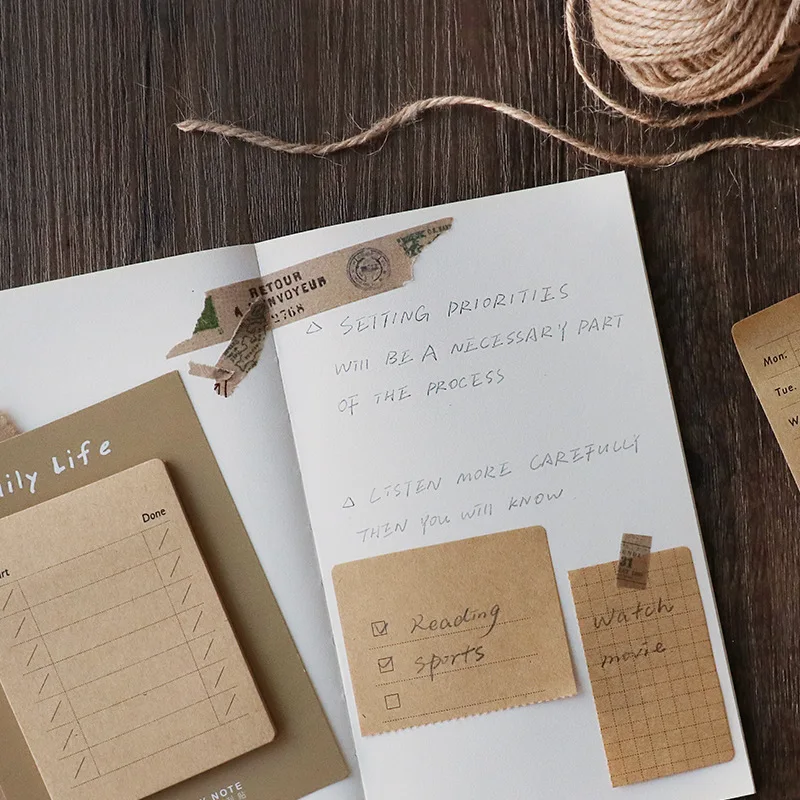 RETOUR
2768
△ SETTING PRIORITIES
Will BE A NECESSARY PART
OF THE PROCESS
△ LISTEN MORE CAREFULLY
THEN YOU Will KNOW.
Life
Done
Reading
sports
31
Watch
movie
Mon.
Tue.
NOTE